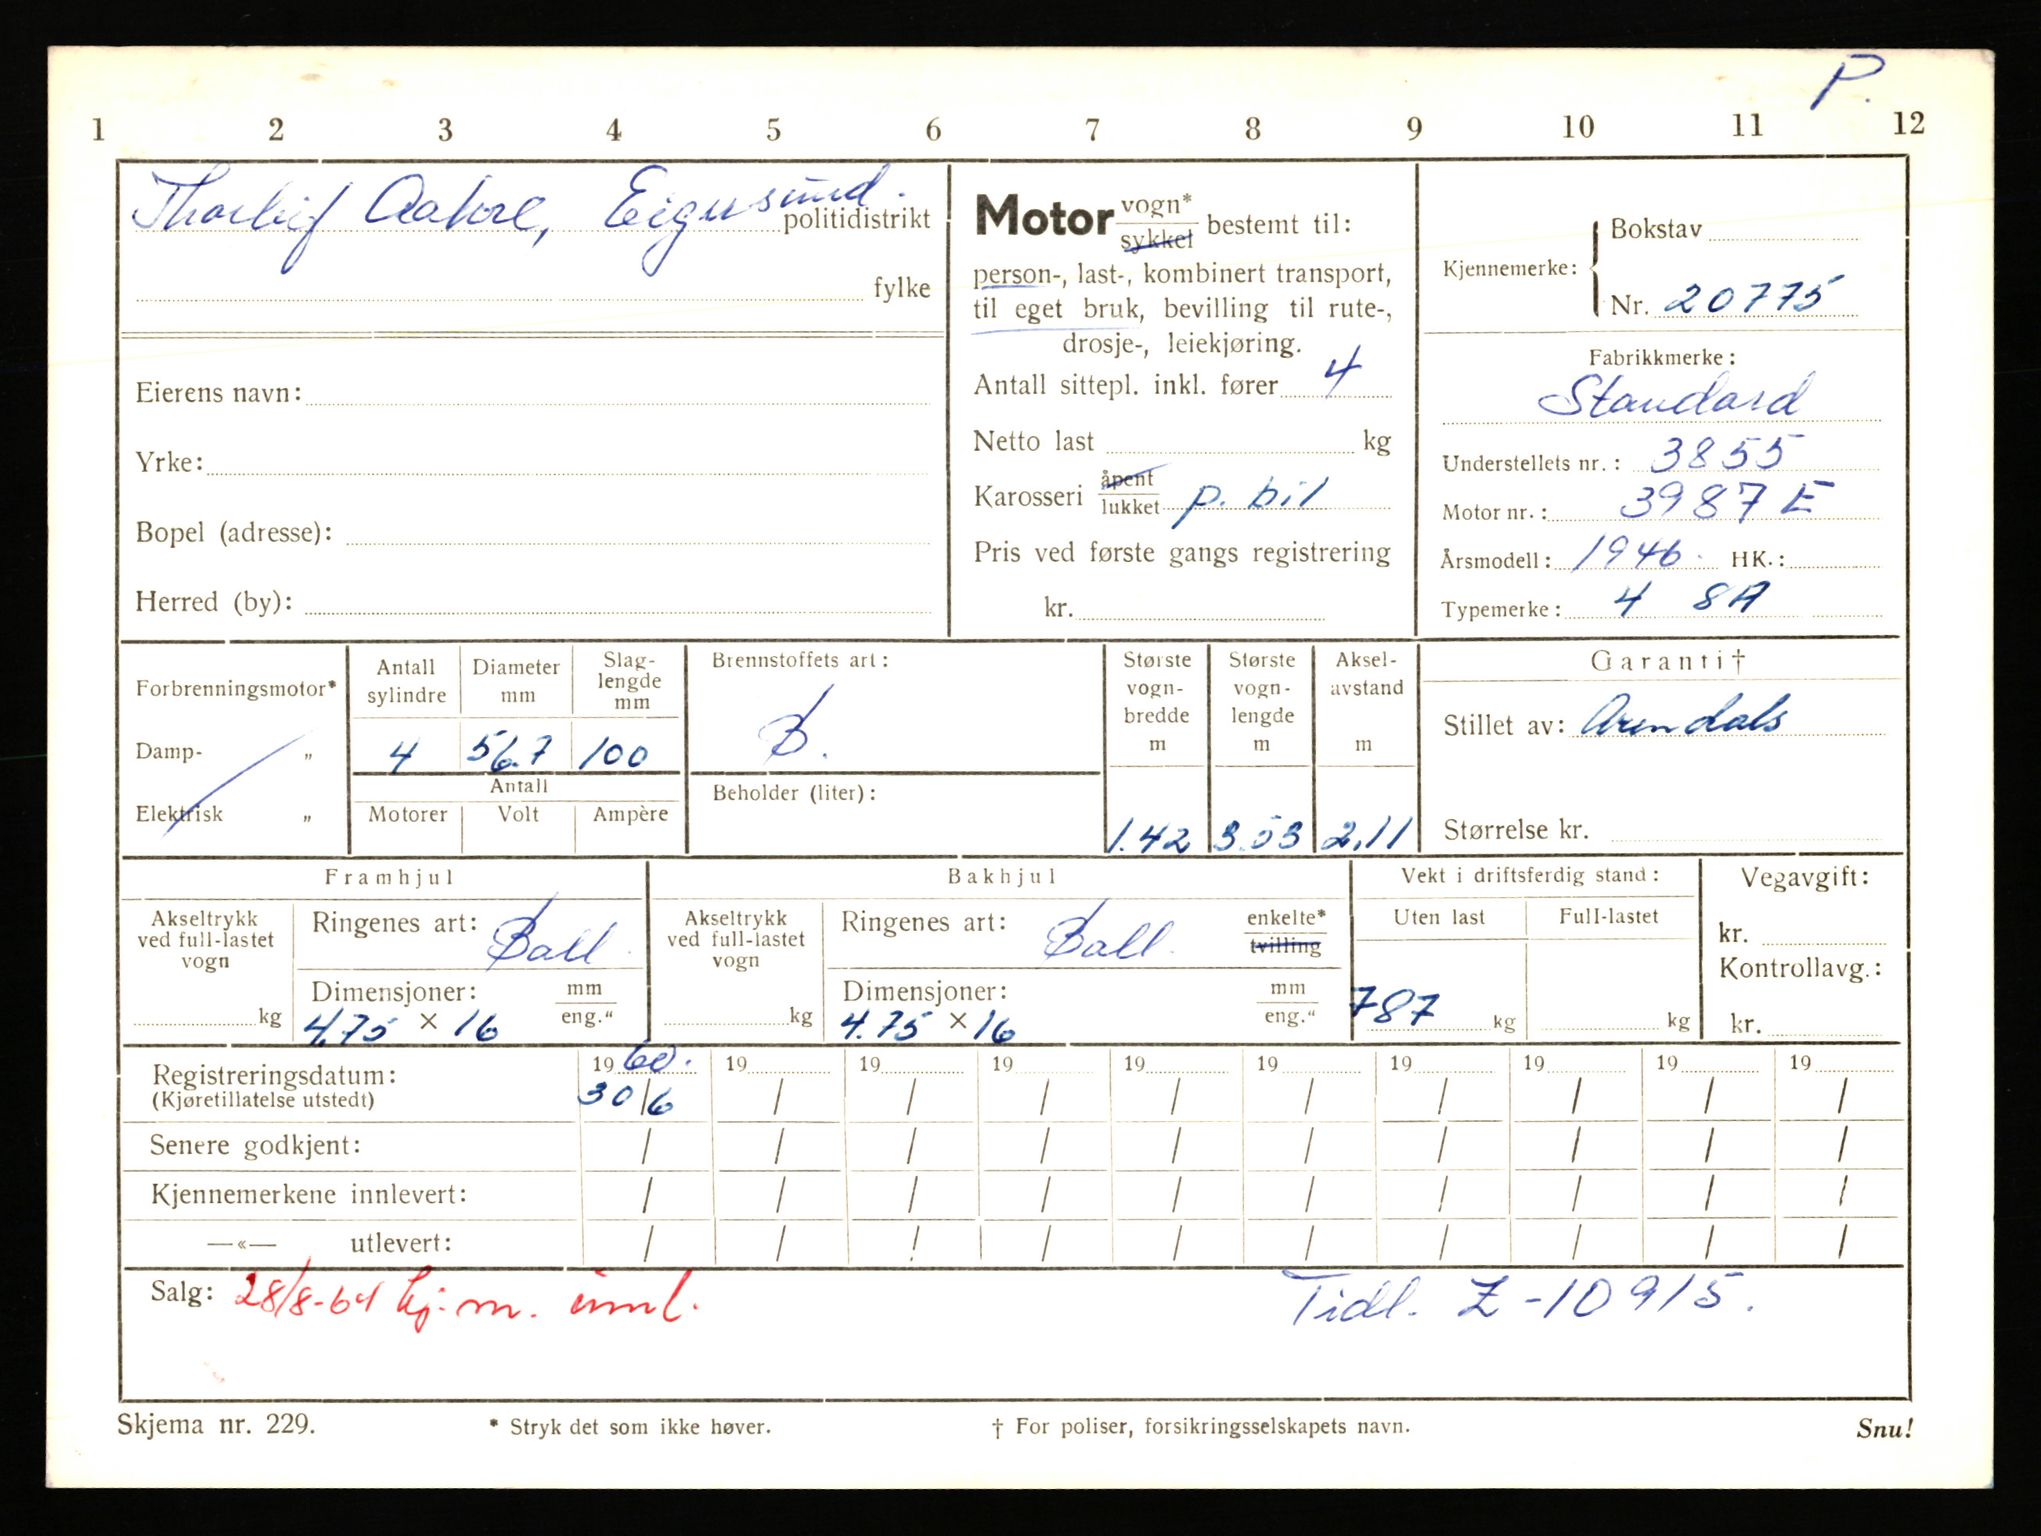 P.
1 2 3 4 5 6 7 8 9 10 11 12
Eigersund. politidistrikt
fylke
Eierens navn:
Yrke:
Bopel (adresse):
Herred (by):
Motor vogn* sykkel bestemt til:
person-, last-, kombinert transport,
til eget bruk, bevilling til rute-,
drosje-, leiekjøring.
Antall sittepl. inkl. fører 4
Netto last kg
Karosseri åpent lukket p. bil
Pris ved første gangs registrering
kr.
Kjennemerke:
Bokstav
Nr. 20775
Fabrikkmerke:
Standard
Understellets nr.: 3855
Motor nr.: 3987 E
Årsmodell: 1946. HK.:
Typemerke: 4 8A
Forbrenningsmotor*
Damp- „
Elektrisk „
Antall sylindre
4
Diameter mm
56.7
Slag-lengde mm
100
Antall
Motorer Volt Ampère
Brennstoffets art:
B.
Beholder (liter):
Største vogn-bredde m
1.42
Største vogn-lengde m
3.53
Aksel-avstand m
2.11
Garanti†
Stillet av: Arendals
Størrelse kr.
Framhjul
Akseltrykk ved full-lastet vogn
kg
Ringenes art: Ball.
Dimensjoner: mm eng."
4.75 × 16
Bakhjul
Akseltrykk ved full-lastet vogn
kg
Ringenes art: Ball. enkelte* tvilling
Dimensjoner: mm eng."
4.75 × 16
Vekt i driftsferdig stand:
Uten last Full-lastet
787 kg kg
Vegavgift:
kr.
Kontrollavg.:
kr.
19 60. 19 19 19 19 19 19 19 19 19
Registreringsdatum:
(Kjøretillatelse utstedt) 30/6 / / / / / / / / /
Senere godkjent: / / / / / / / / / /
Kjennemerkene innlevert: / / / / / / / / / /
—«— utlevert: / / / / / / / / / /
Salg: 28/8-64 kj.m. innl. Tidl. Z-10915.
Skjema nr. 229. * Stryk det som ikke høver. † For poliser, forsikringsselskapets navn. Snu!